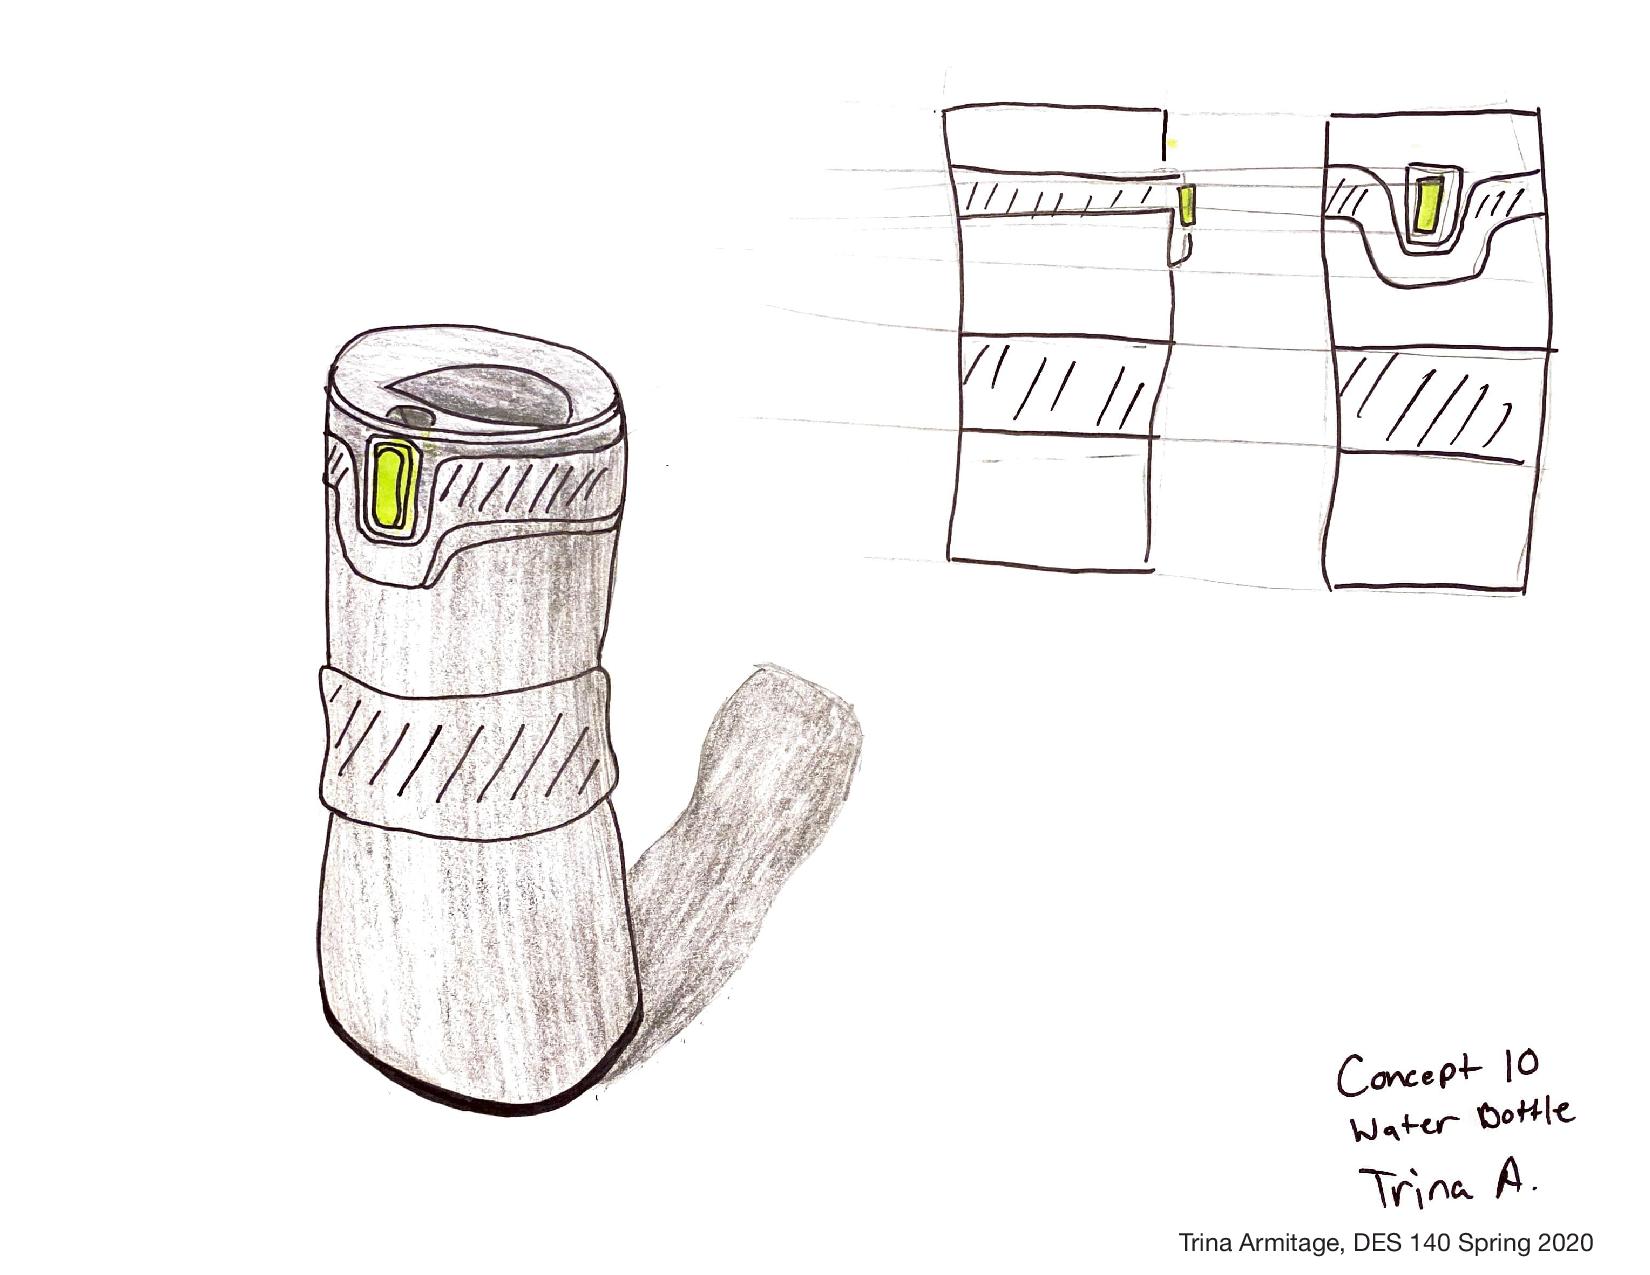 Concept 10
Water Bottle
Trina A.
Trina Armitage, DES 140 Spring 2020